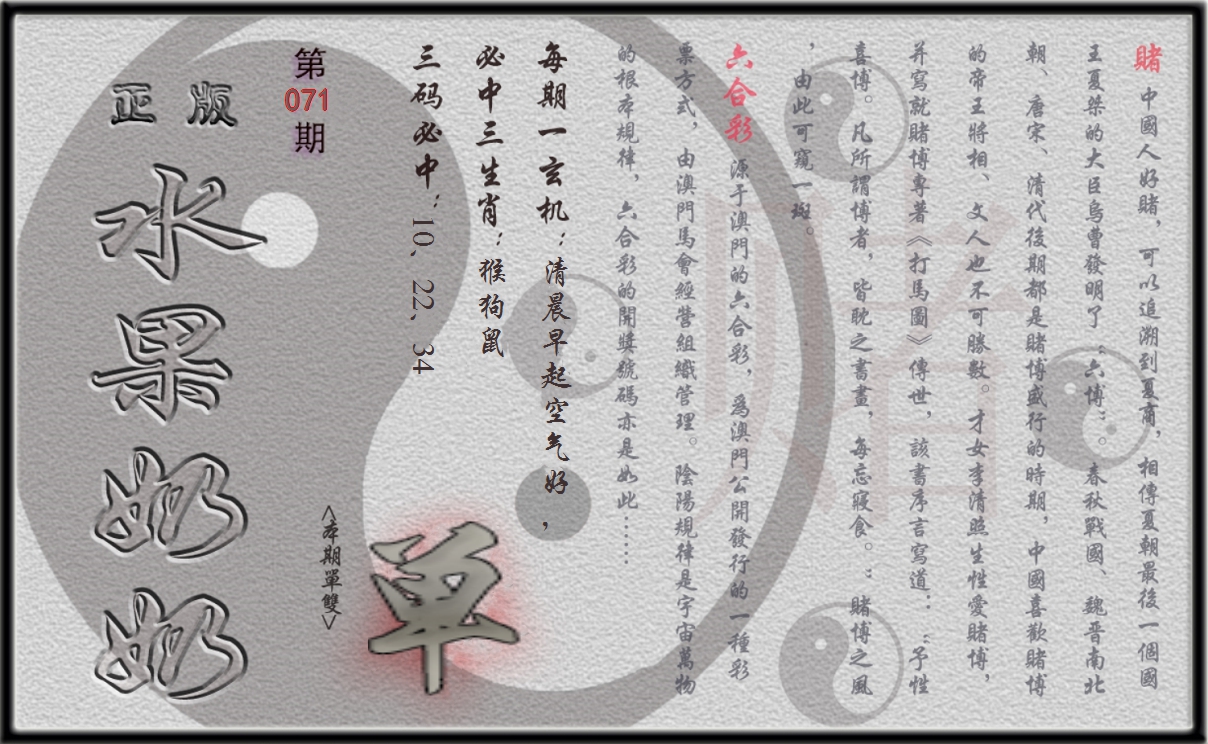 賭 中國人好賭，可以追溯到夏商，相傳夏朝最後一個國
王夏桀的大臣烏曹發明了“六博”。春秋戰國、魏晉南北
朝、唐宋、清代後期都是賭博盛行的時期，中國喜歡賭博
的帝王將相、文人也不可勝數。才女李清照生性愛賭博，
并寫就賭博專著《打馬圖》傳世，該書序言寫道：“予性
喜博。凡所謂博者，皆耽之晝，每忘寢食。：賭博之風
，由此可窺一斑。
六合彩 源于澳門的六合彩，為澳門公開發行的一種彩
票方式，由澳門馬會經營組織管理。陰陽規律是宇宙萬物
的根本規律，六合彩的開獎號碼亦是如此……
每期一玄机：清晨早起空气好，
必中三生肖：猴狗鼠
三码必中：10、22、34
單
<本期單雙>
第
071
期
正版
水果奶奶
賭